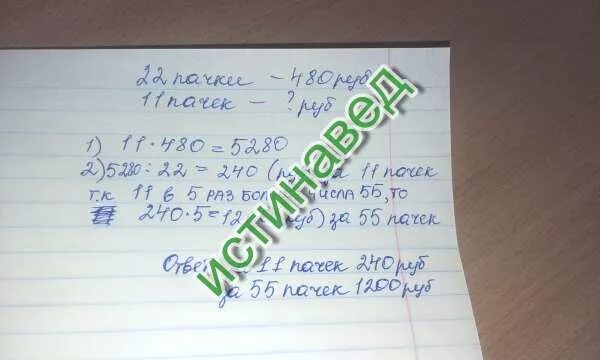 22 пачки - 480 руб
11 пачек - ? руб
1) 11 · 480 = 5280
2) 5280 : 22 = 240 ( 11 пачек
т.к 11 в 5 РАЗ 55, то
240 · 5 = за 55 пачек
11 пачек 240 руб
за 55 пачек 1200 руб
истинавед